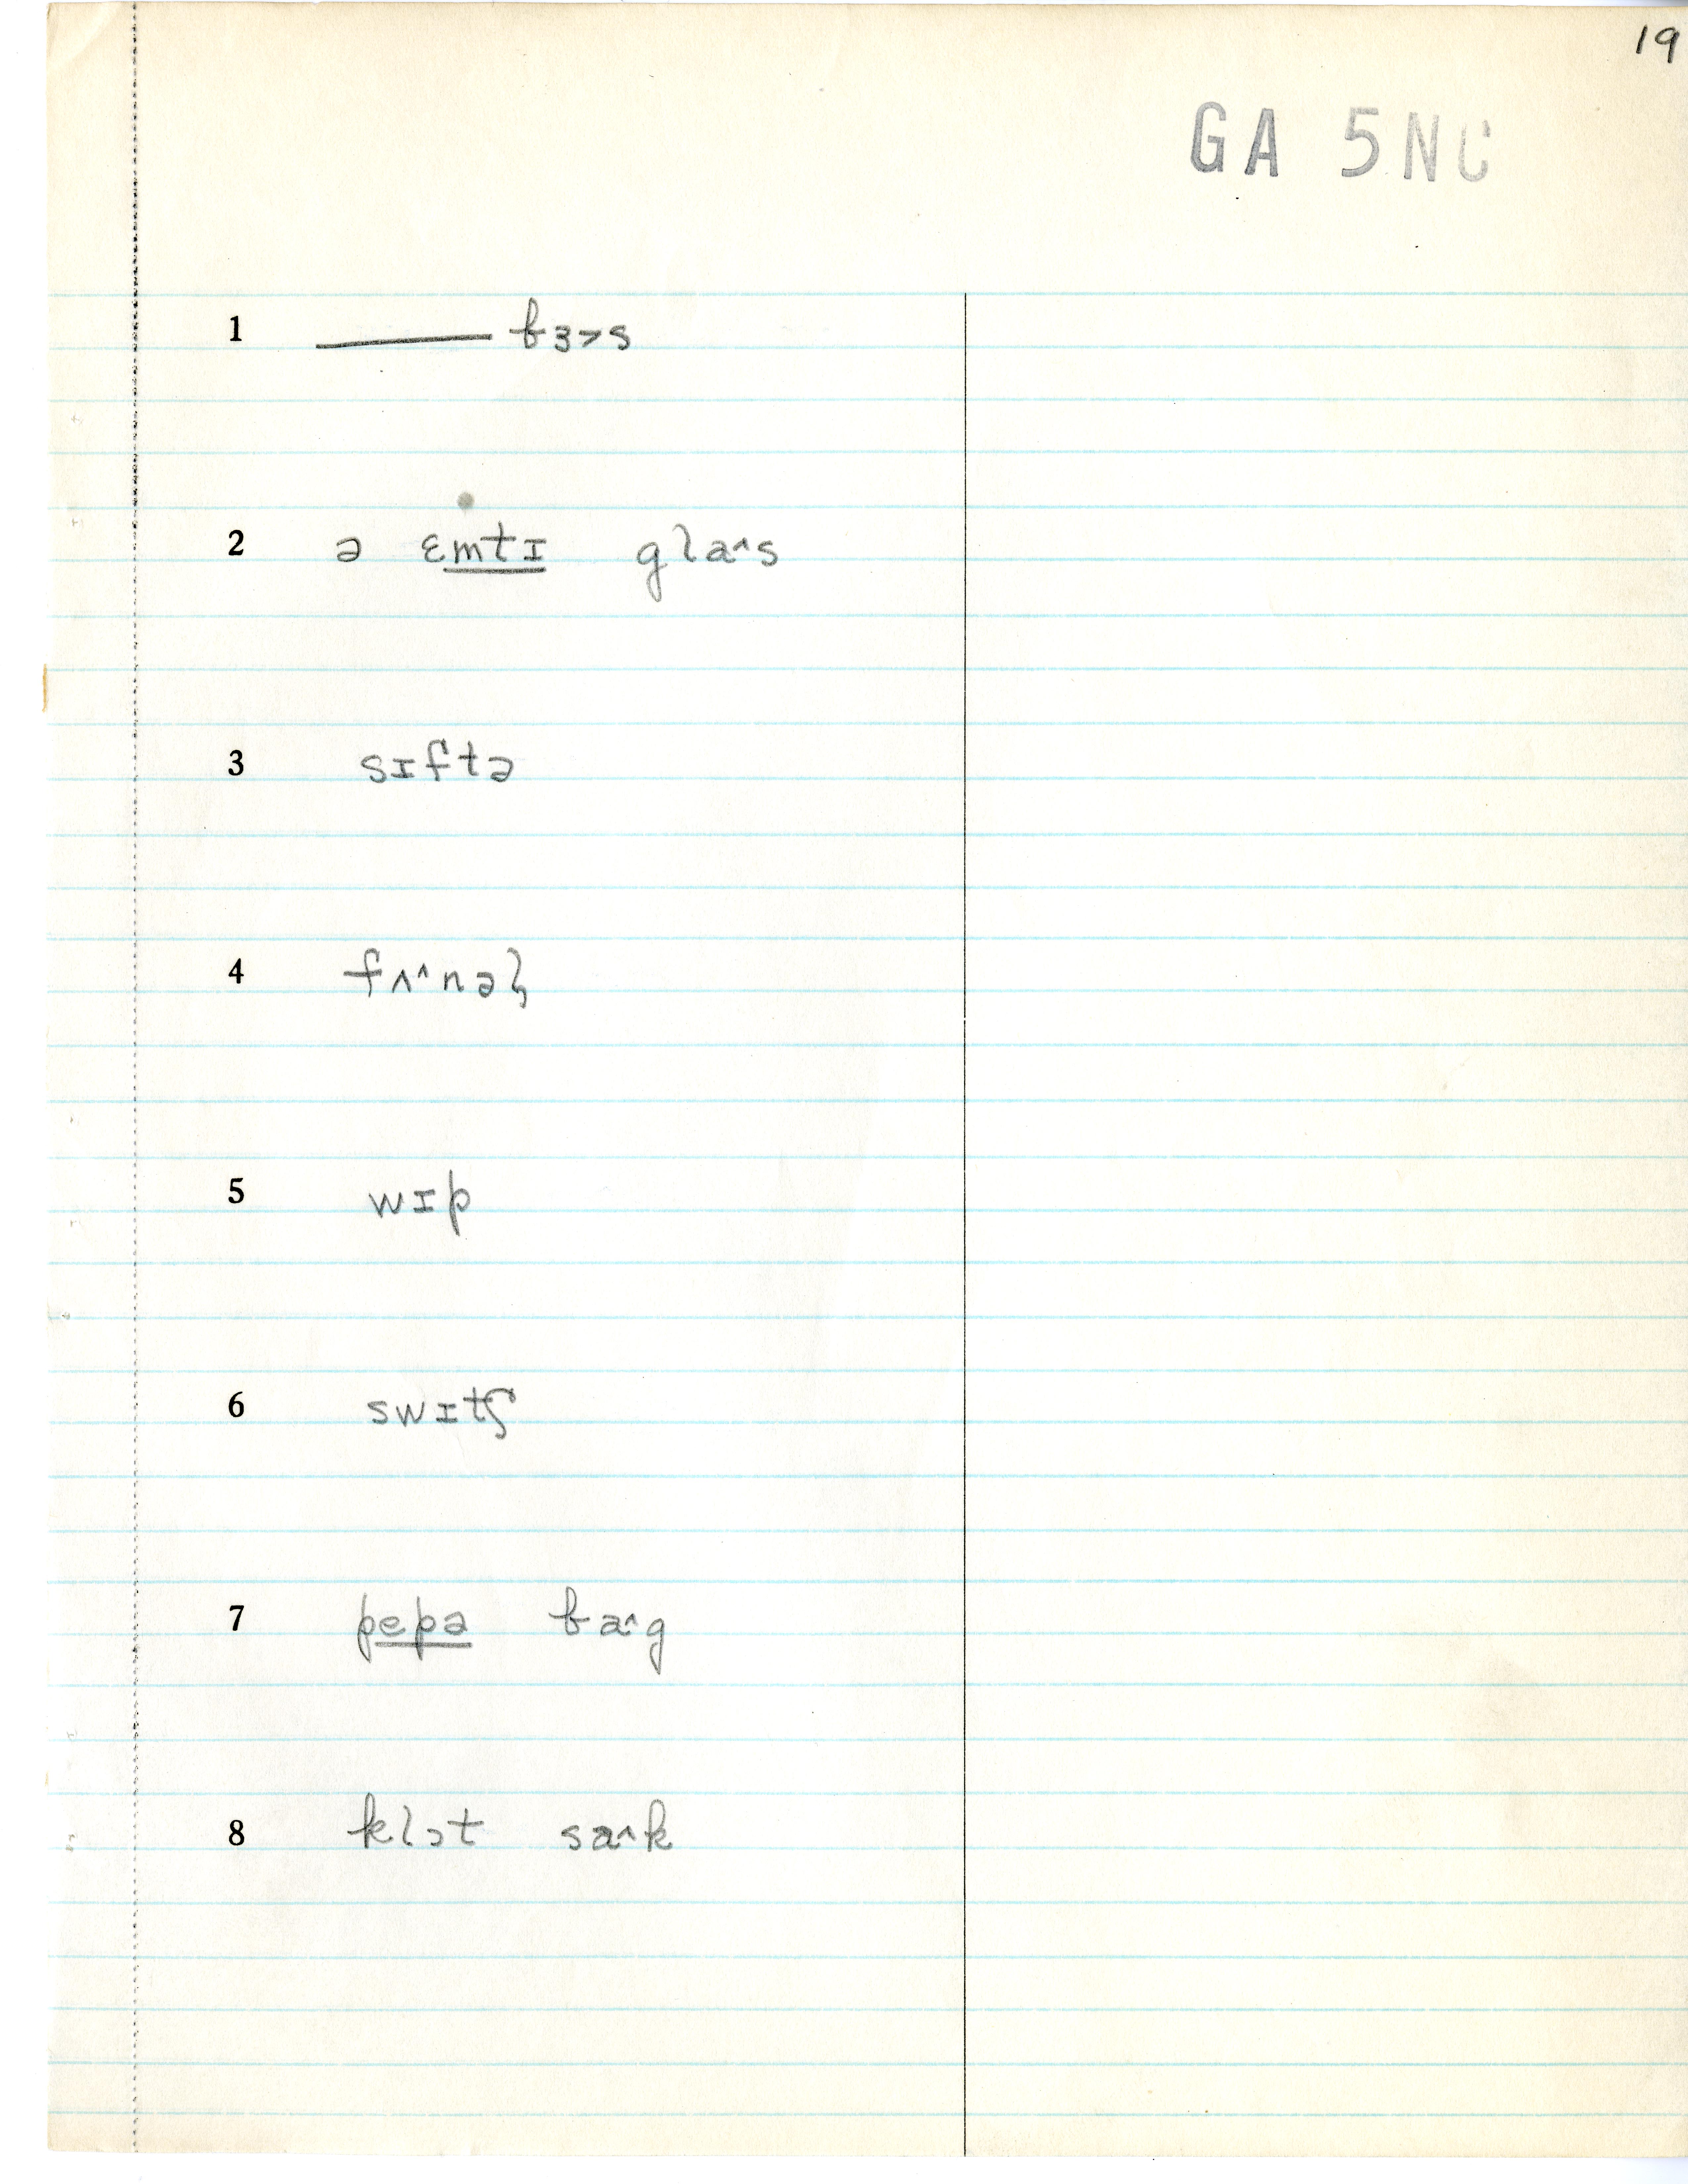 19
GA 5NC
1 ——— bɜ˃s
2 ə ɛmtɪ glaˆs
3 sɪftə
4 fʌˆnəɫ̡
5 wɪp
6 swɪtʃ
7 pepə baˆg
8 klɔt saˆk